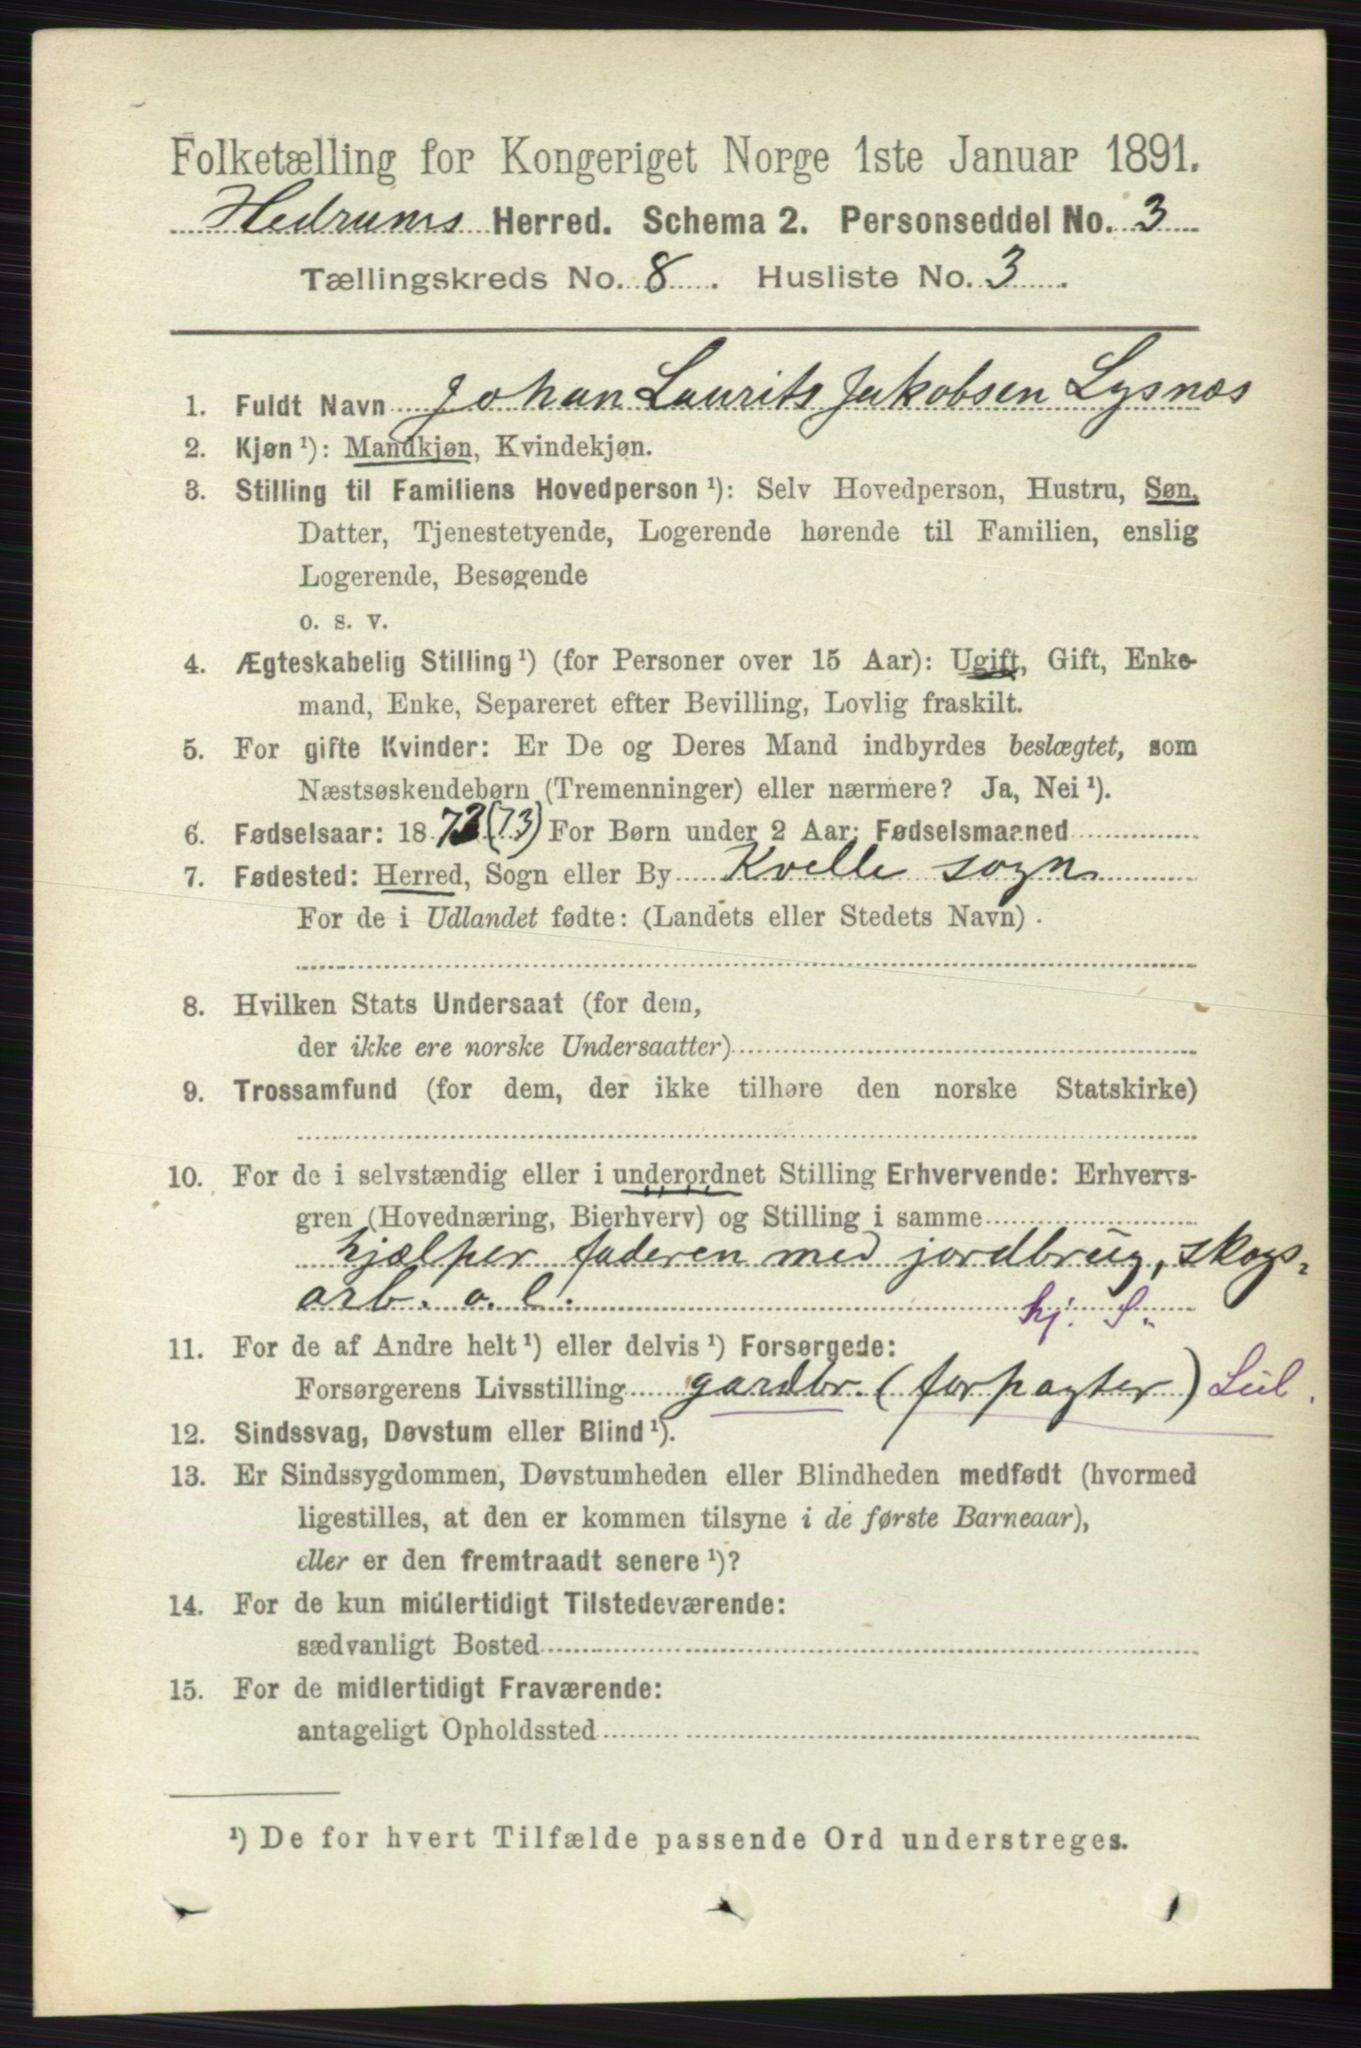 Folketælling for Kongeriget Norge 1ste Januar 1891.
Hedrums Herred. Schema 2. Personseddel No. 3
Tællingskreds No. 8. Husliste No. 3.
1. Fuldt Navn Johan Laurits Jakobsen Lysnes
2. Kjøn ¹): Mandkjøn, Kvindekjøn.
3. Stilling til Familiens Hovedperson ¹): Selv Hovedperson, Hustru, Søn,
Datter, Tjenestetyende, Logerende hørende til Familien, enslig
Logerende, Besøgende
o. s. v.
4. Ægteskabelig Stilling ¹) (for Personer over 15 Aar): Ugift, Gift, Enke-
mand, Enke, Separeret efter Bevilling, Lovlig fraskilt.
5. For gifte Kvinder: Er De og Deres Mand indbyrdes beslægtet, som
Næstsøskendebørn (Tremenninger) eller nærmere? Ja, Nei ¹).
6. Fødselsaar: 1873 (73) For Børn under 2 Aar: Fødselsmaaned
7. Fødested: Herred, Sogn eller By Kvelle sogn
For de i Udlandet fødte: (Landets eller Stedets Navn)
8. Hvilken Stats Undersaat (for dem,
der ikke ere norske Undersaatter)
9. Trossamfund (for dem, der ikke tilhøre den norske Statskirke)
10. For de i selvstændig eller i underordnet Stilling Erhvervende: Erhvervs-
gren (Hovednæring, Bierhverv) og Stilling i samme
hjælper faderen med jordbrug, skogs-
arb. o. l.
hj. S.
11. For de af Andre helt ¹) eller delvis ¹) Forsørgede:
Forsørgerens Livsstilling gardbr. (forpagter)
12. Sindssvag, Døvstum eller Blind ¹).
13. Er Sindssygdommen, Døvstumheden eller Blindheden medfødt (hvormed
ligestilles, at den er kommen tilsyne i de første Barneaar),
eller er den fremtraadt senere ¹)?
14. For de kun midlertidigt Tilstedeværende:
sædvanligt Bosted
15. For de midlertidigt Fraværende:
antageligt Opholdssted
¹) De for hvert Tilfælde passende Ord understreges.